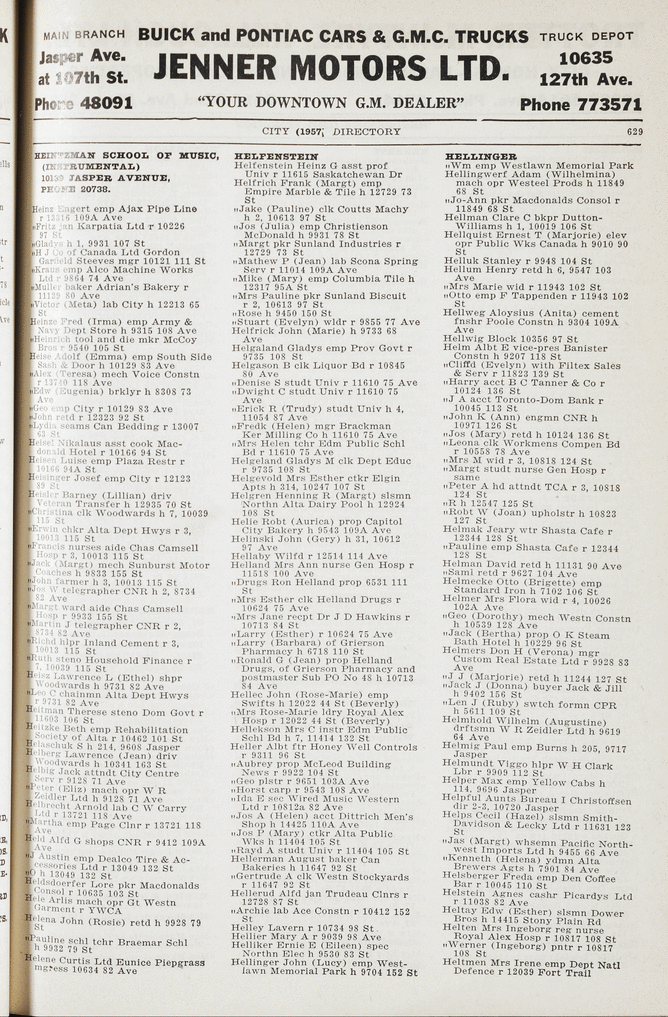 MAIN BRANCH
Jasper Ave.
at 107th St.
Phone 48091
BUICK and PONTIAC CARS & G.M.C. TRUCKS
JENNER MOTORS LTD.
"YOUR DOWNTOWN G.M. DEALER"
TRUCK DEPOT
10635
127th Ave.
Phone 773571
CITY (1957) DIRECTORY
629
HEINTZMAN SCHOOL OF MUSIC,
(INSTRUMENTAL)
10139 JASPER AVENUE,
PHONE 20738.
Heinz Engert emp Ajax Pipe Line
r 13316 109A Ave
"Fritz jan Karpatia Ltd r 10226
97 St
"Gladys h 1, 9931 107 St
"H J Co of Canada Ltd Gordon
Garfield Steeves mgr 10121 111 St
"Kraus emp Alco Machine Works
Ltd r 9864 74 Ave
"Muller baker Adrian's Bakery r
11129 80 Ave
"Victor (Meta) lab City h 12213 65
St
Heinze Fred (Irma) emp Army &
Navy Dept Store h 9315 108 Ave
"Heinrich tool and die mkr McCoy
Bros r 9540 105 St
Heise Adolf (Emma) emp South Side
Sash & Door h 10129 83 Ave
"Alex (Teresa) mech Voice Constn
r 13740 118 Ave
"Edw (Eugenia) brklyr h 8308 73
Ave
"Geo emp City r 10129 83 Ave
"John retd r 12323 92 St
"Lydia seams Can Bedding r 13007
63 St
Heisel Nikalaus asst cook Mac-
donald Hotel r 10166 94 St
Heisen Luise emp Plaza Restr r
10166 94A St
Heisinger Josef emp City r 12123
89 St
Heisler Barney (Lillian) driv
Veteran Transfer h 12935 70 St
"Christina clk Woodwards h 7, 10039
115 St
"Erwin chkr Alta Dept Hwys r 3,
10013 115 St
"Francis nurses aide Chas Camsell
Hosp r 3, 10013 115 St
"Jack (Margt) mech Sunburst Motor
Coaches h 9833 155 St
"John farmer h 3, 10013 115 St
"Jos W telegrapher CNR h 2, 8734
82 Ave
"Margt ward aide Chas Camsell
Hosp r 9933 155 St
"Martin J telegrapher CNR r 2,
8734 82 Ave
"Richd hlpr Inland Cement r 3,
10013 115 St
"Ruth steno Household Finance r
7, 10039 115 St
Heisz Lawrence L (Ethel) shpr
Woodwards h 9731 82 Ave
"Leo C chainmn Alta Dept Hwys
r 9731 82 Ave
Heitman Therese steno Dom Govt r
11603 106 St
Heitzke Beth emp Rehabilitation
Society of Alta r 10462 101 St
Helaschuk S h 214, 9608 Jasper
Helberg Lawrence (Jean) driv
Woodwards h 10341 163 St
Helbig Jack attndt City Centre
Serv r 9128 71 Ave
"Peter (Eliz) mach opr W R
Zeidler Ltd h 9128 71 Ave
Helbrecht Arnold lab C W Carry
Ltd r 13721 118 Ave
"Martha emp Page Clnr r 13721 118
Ave
Held Alfd G shops CNR r 9412 109A
Ave
"J Austin emp Dealco Tire & Ac-
cessories Ltd r 13049 132 St
"O h 13049 132 St
Heldsdoerfer Lore pkr Macdonalds
Consol r 10635 103 St
Hele Arlis mach opr Gt Westn
Garment r YWCA
Helena John (Rosie) retd h 9928 79
St
"Pauline schl tchr Braemar Schl
h 9932 79 St
Helene Curtis Ltd Eunice Piepgrass
mgress 10634 82 Ave
HELFENSTEIN
Helfenstein Heinz G asst prof
Univ r 11615 Saskatchewan Dr
Helfrich Frank (Margt) emp
Empire Marble & Tile h 12729 73
St
"Jake (Pauline) clk Coutts Machy
h 2, 10613 97 St
"Jos (Julia) emp Christienson
McDonald h 9931 78 St
"Margt pkr Sunland Industries r
12729 73 St
"Mathew P (Jean) lab Scona Spring
Serv r 11014 109A Ave
"Mike (Mary) emp Columbia Tile h
12317 95A St
"Mrs Pauline pkr Sunland Biscuit
r 2, 10613 97 St
"Rose h 9450 150 St
"Stuart (Evelyn) wldr r 9855 77 Ave
Helfrick John (Marie) h 9733 68
Ave
Helgaland Gladys emp Prov Govt r
9735 108 St
Helgason B clk Liquor Bd r 10845
80 Ave
"Denise S studt Univ r 11610 75 Ave
"Dwight C studt Univ r 11610 75
Ave
"Erick R (Trudy) studt Univ h 4,
11054 87 Ave
"Fredk (Helen) mgr Brackman
Ker Milling Co h 11610 75 Ave
"Mrs Helen tchr Edm Public Schl
Bd r 11610 75 Ave
Helgeland Gladys M clk Dept Educ
r 9735 108 St
Helgevold Mrs Esther ctkr Elgin
Apts h 314, 10247 107 St
Helgren Henning R (Margt) slsmn
Northn Alta Dairy Pool h 12924
108 St
Helie Robt (Aurica) prop Capitol
City Bakery h 9543 109A Ave
Helinski John (Gery) h 31, 10612
97 Ave
Hellaby Wilfd r 12514 114 Ave
Helland Mrs Ann nurse Gen Hosp r
11518 100 Ave
"Drugs Ron Helland prop 6531 111
St
"Mrs Esther clk Helland Drugs r
10624 75 Ave
"Mrs Jane recpt Dr J D Hawkins r
10713 84 St
"Larry (Esther) r 10624 75 Ave
"Larry (Barbara) of Grierson
Pharmacy h 6718 110 St
"Ronald G (Jean) prop Helland
Drugs, of Grierson Pharmacy and
postmaster Sub PO No 48 h 10713
84 Ave
Hellec John (Rose-Marie) emp
Swifts h 12022 44 St (Beverly)
"Mrs Rose-Marie ldry Royal Alex
Hosp r 12022 44 St (Beverly)
Hellekson Mrs C instr Edm Public
Schl Bd h 7, 11414 132 St
Heller Albt ftr Honey Well Controls
r 9311 96 St
"Aubrey prop McLeod Building
News r 9922 104 St
"Geo plstr r 9651 103A Ave
"Horst carp r 9543 108 Ave
"Ida E sec Wired Music Western
Ltd r 10812a 82 Ave
"Jos A (Helen) acct Dittrich Men's
Shop h 14425 110A Ave
"Jos P (Mary) ctkr Alta Public
Wks h 11404 105 St
"Rayd A studt Univ r 11404 105 St
Hellerman August baker Can
Bakeries h 11647 92 St
"Gertrude A clk Westn Stockyards
r 11647 92 St
Hellerud Alfd jan Trudeau Clnrs r
12728 87 St
"Archie lab Ace Constn r 10412 152
St
Helley Lavern r 10734 98 St
Hellier Mary A r 9039 98 Ave
Helliker Ernie E (Eileen) spec
Northn Elec h 9530 83 St
Hellinger John (Lucy) emp West-
lawn Memorial Park h 9704 152 St
HELLINGER
"Wm emp Westlawn Memorial Park
Hellingwerf Adam (Wilhelmina)
mach opr Westeel Prods h 11849
68 St
"Jo-Ann pkr Macdonalds Consol r
11849 68 St
Hellman Clare C bkpr Dutton-
Williams h 1, 10019 106 St
Hellquist Ernest T (Marjorie) elev
opr Public Wks Canada h 9010 90
St
Helluk Stanley r 9948 104 St
Hellum Henry retd h 6, 9547 103
Ave
"Mrs Marie wid r 11943 102 St
"Otto emp F Tappenden r 11943 102
St
Hellweg Aloysius (Anita) cement
fnshr Poole Constn h 9304 109A
Ave
Hellwig Block 10356 97 St
Helm Albt E vice-pres Banister
Constn h 9207 118 St
"Cliffd (Evelyn) with Filtex Sales
& Serv r 11823 139 St
"Harry acct B C Tanner & Co r
10124 136 St
"J A acct Toronto-Dom Bank r
10045 113 St
"John K (Ann) engmn CNR h
10971 126 St
"Jos (Mary) retd h 10124 136 St
"Leona clk Workmens Compen Bd
r 10558 78 Ave
"Mrs M wid r 3, 10818 124 St
"Margt studt nurse Gen Hosp r
same
"Peter A hd attndt TCA r 3, 10818
124 St
"R h 12547 125 St
"Robt W (Joan) upholstr h 10823
127 St
Helmak Jeary wtr Shasta Cafe r
12344 128 St
"Pauline emp Shasta Cafe r 12344
128 St
Helman David retd h 11131 90 Ave
"Sami retd r 9627 104 Ave
Helmecke Otto (Brigette) emp
Standard Iron h 7102 106 St
Helmer Mrs Flora wid r 4, 10026
102A Ave
"Geo (Dorothy) mech Westn Constn
h 10539 128 Ave
"Jack (Bertha) prop O K Steam
Bath Hotel h 10229 96 St
Helmers Don H (Verona) mgr
Custom Real Estate Ltd r 9928 83
Ave
"J J (Marjorie) retd h 11244 127 St
"Jack J (Donna) buyer Jack & Jill
h 9402 156 St
"Len J (Ruby) swtch formn CPR
h 5611 109 St
Helmhold Wilhelm (Augustine)
drftsmn W R Zeidler Ltd h 9619
64 Ave
Helmig Paul emp Burns h 205, 9717
Jasper
Helmundt Viggo hlpr W H Clark
Lbr r 9909 112 St
Helper Max emp Yellow Cabs h
114, 9696 Jasper
Helpful Aunts Bureau I Christoffsen
dir 2-3, 10720 Jasper
Helps Cecil (Hazel) slsmn Smith-
Davidson & Lecky Ltd r 11631 123
St
"Jas (Margt) whsemn Pacific North-
west Imports Ltd h 9455 66 Ave
"Kenneth (Helena) ydmn Alta
Brewers Agts h 7901 84 Ave
Helsberger Freda emp Den Coffee
Bar r 10045 110 St
Helstein Agnes cashr Picardys Ltd
r 11038 82 Ave
Heltay Edw (Esther) slsmn Dower
Bros h 14415 Stony Plain Rd
Helten Mrs Ingeborg reg nurse
Royal Alex Hosp r 10817 108 St
"Werner (Ingeborg) pntr r 10817
108 St
Heltmen Mrs Irene emp Dept Natl
Defence r 12039 Fort Trail